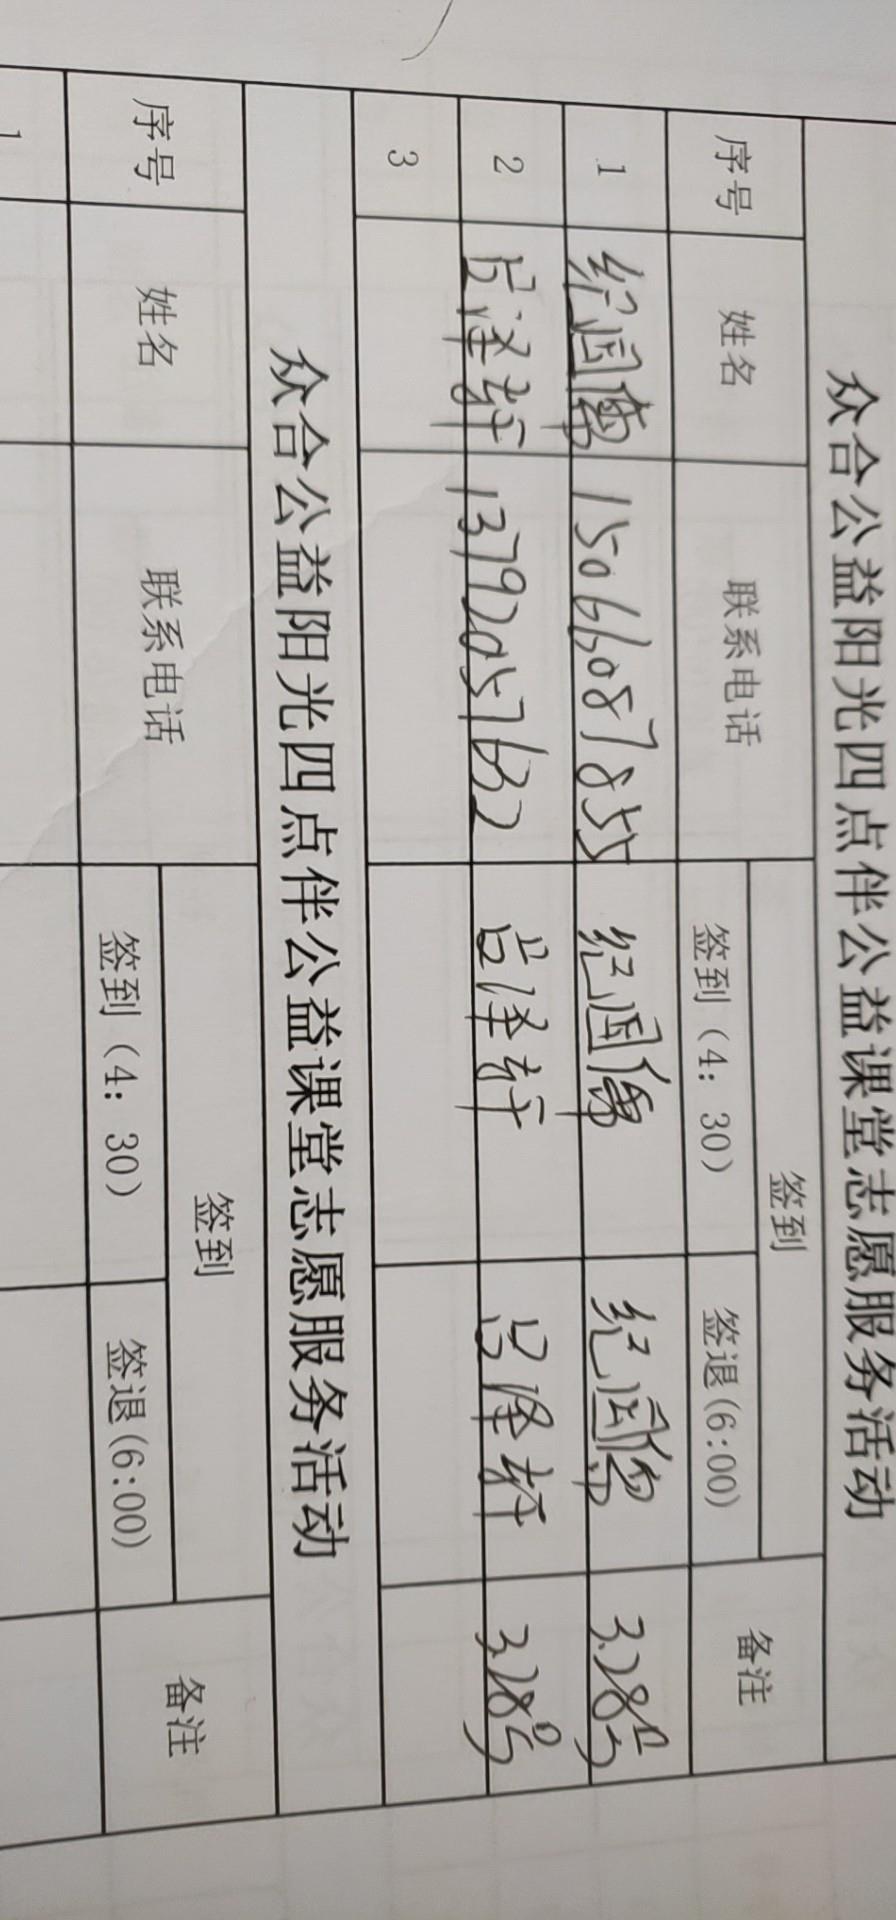 众合公益阳光四点伴公益课堂志愿服务活动
序号 姓名 联系电话 签到 备注
签到（4：30） 签退(6:00)
1 15066087855 3.28号
2 吕泽轩 13792057632 吕泽轩 吕泽轩 3.28号
3
众合公益阳光四点伴公益课堂志愿服务活动
序号 姓名 联系电话 签到 备注
签到（4：30） 签退(6:00)
1